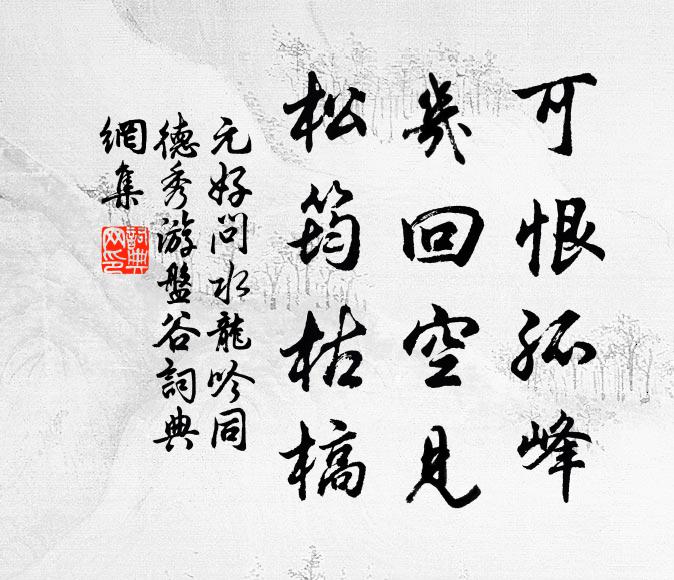 可恨孤峰
幾回空見
松筠枯槁
元好問水龍吟同
德秀游盤谷詞典
網集
詞典網印